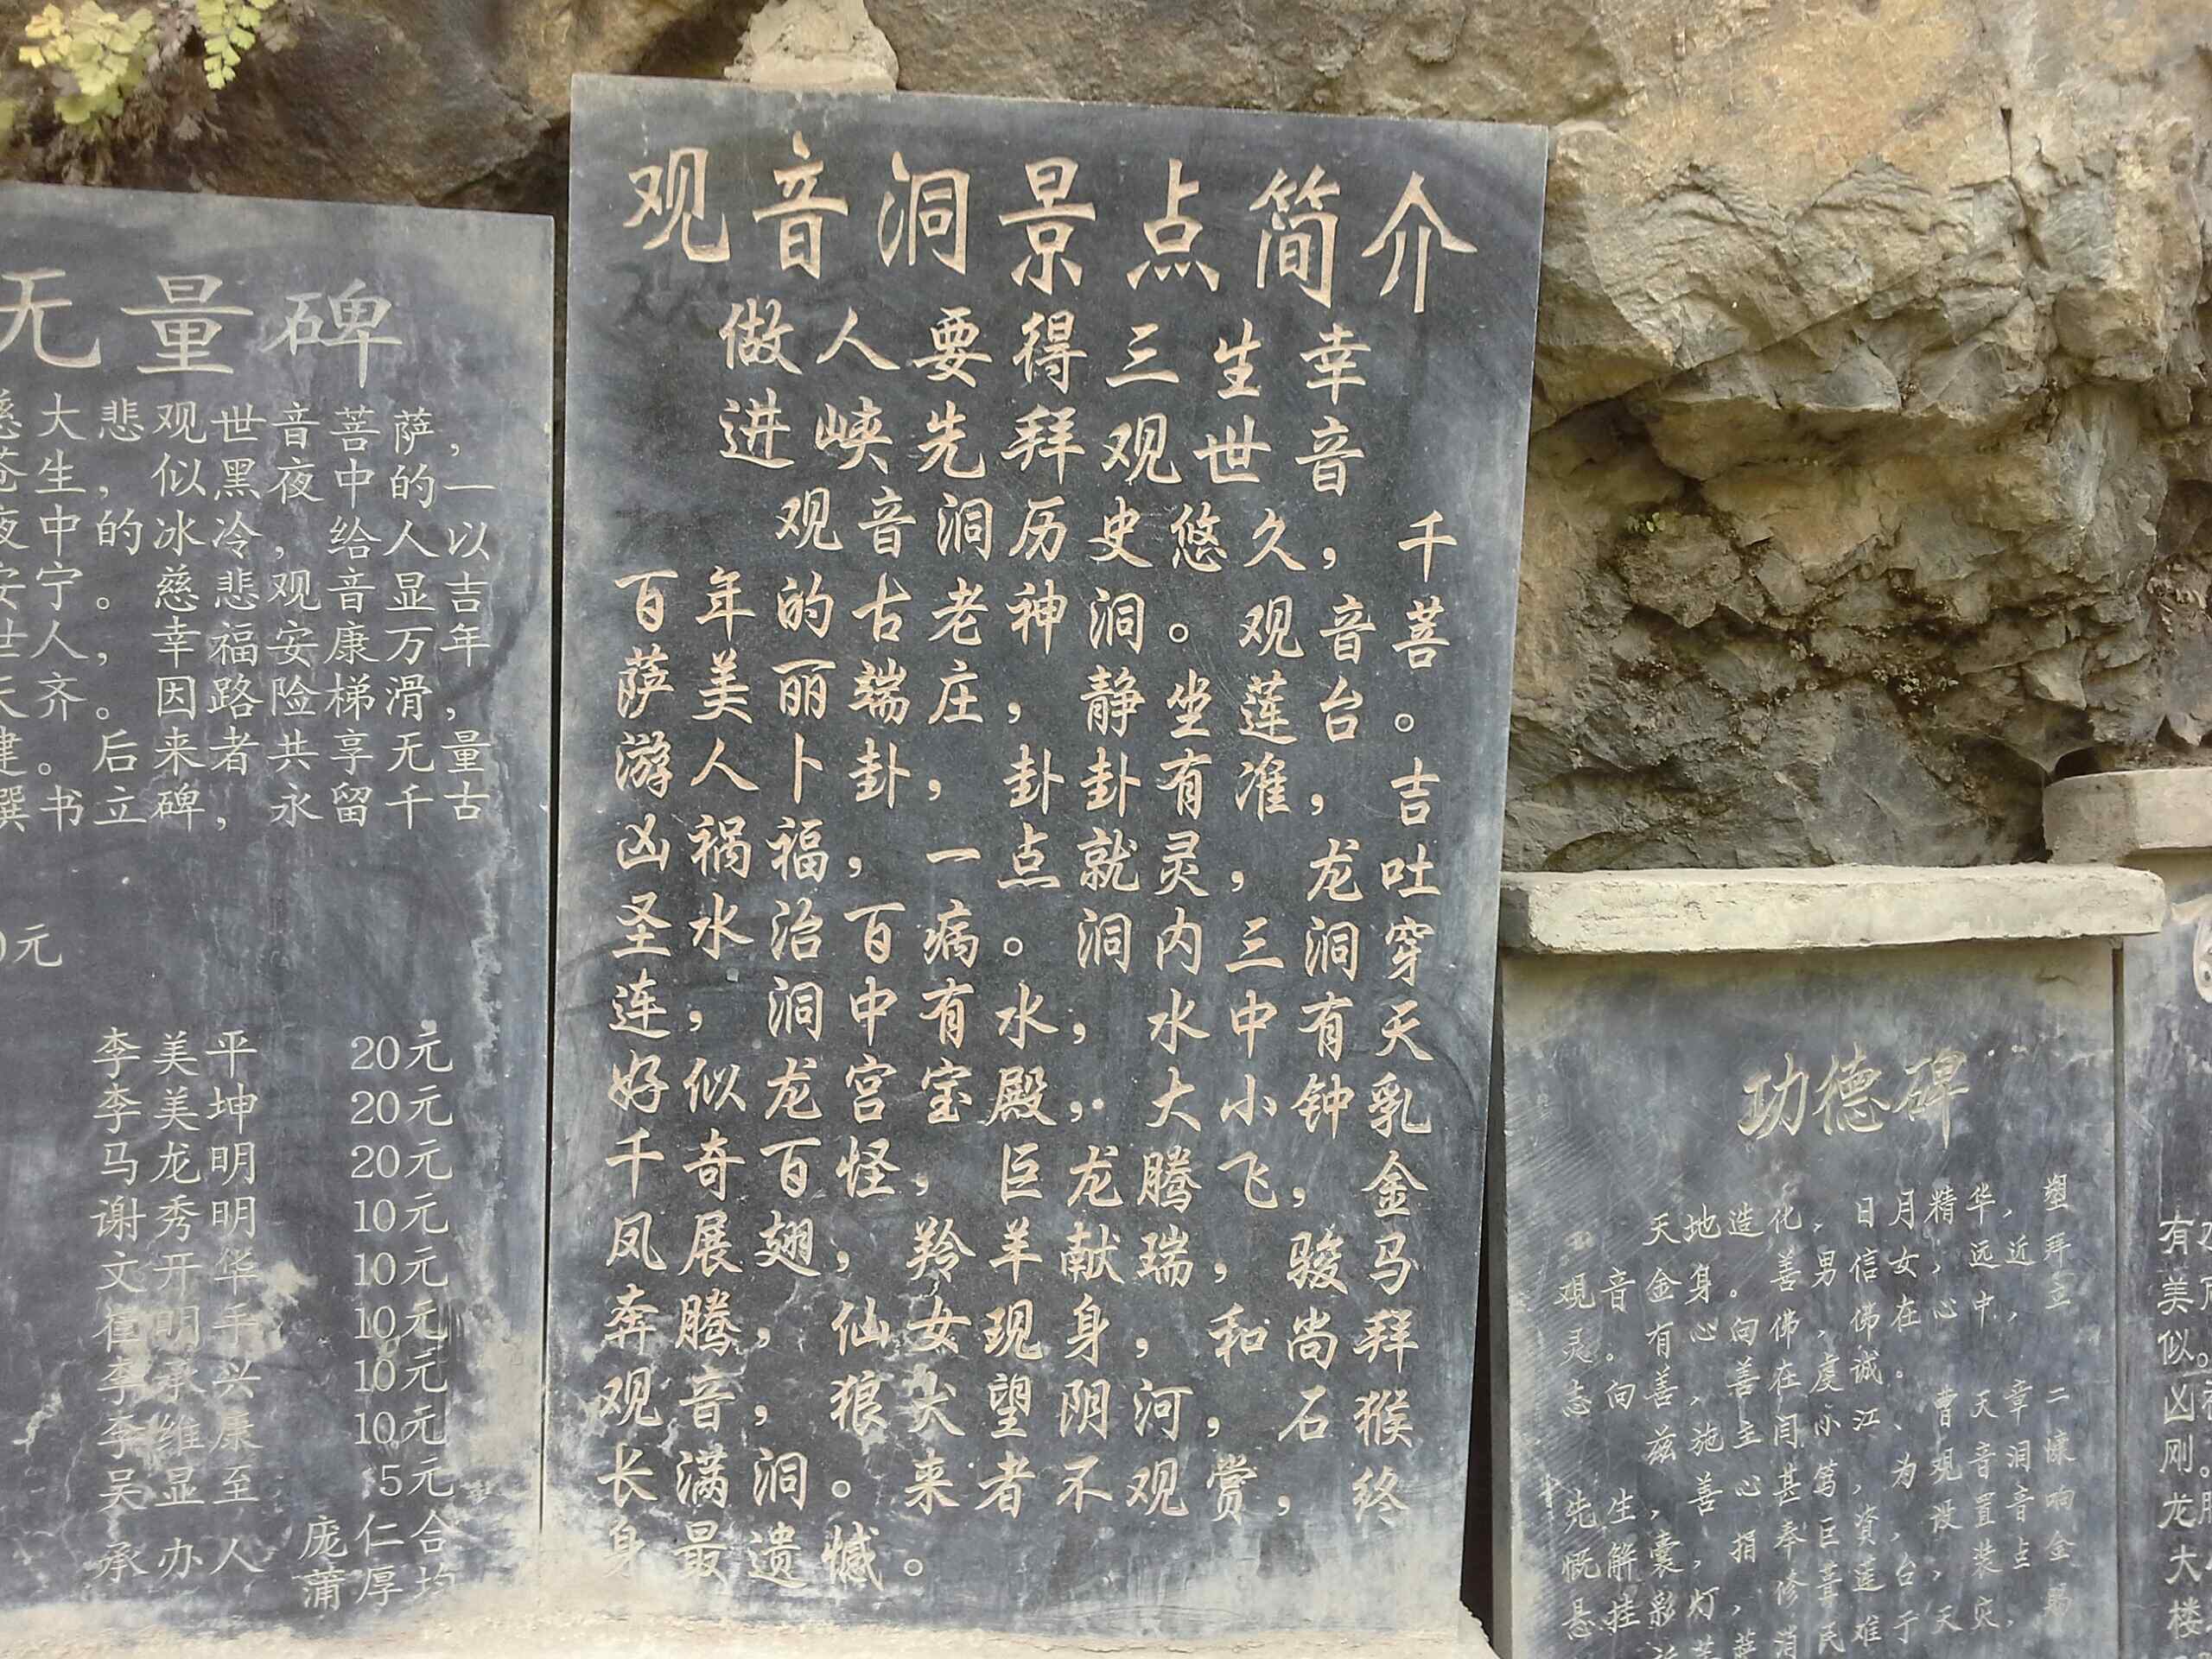 无量碑
大悲观世音菩萨，
生，似黑夜中的一
中的冰冷，给人以
宁。慈悲观音显吉
人，幸福安康万年
齐。因路险梯滑，
。后来者共享无量
书立碑，永留千古
元
李美平 20元
李美坤 20元
马龙明 20元
谢秀明 10元
文开华 10元
明手 10元
李承兴 10元
李维康 10元
吴显至 5元
承办人 庞仁合
蒲厚均
观音洞景点简介
做人要得三生幸
进峡先拜观世音
观音洞历史悠久，千
百年的古老神洞。观音菩
萨美丽端庄，静坐莲台。
游人卜卦，卦卦有准，吉
凶祸福，一点就灵，龙吐
圣水治百病。洞内三洞穿
连，洞中有水，水中有天
好似龙宫宝殿，大小钟乳
千奇百怪，巨龙腾飞，金
凤展翅，羚羊献瑞，骏马
奔腾，仙女现身，和尚拜
观音，狼犬望阴河，石猴
长满洞。来者不观赏，终
身最遗憾。
功德碑
天地造化，日月精华，塑
观音金身。善男信女，远近拜
灵。有心向佛，佛在心中，立
志向善，善在虔诚。
兹施主闫小江、曹天章二
先生，善心甚笃，为观音洞慷
慨解囊，捐奉巨资，设置音响
悬挂彩灯，修葺莲台，装点金
菩萨消民难于天灾，赐
有
美
似。
凶
刚。
龙
大
楼